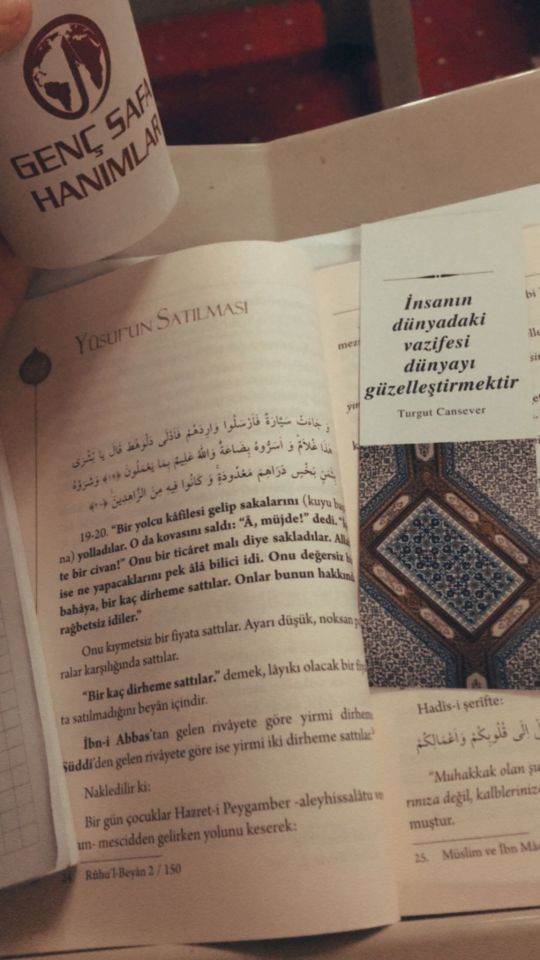 GENÇ SAFA
HANIMLAR
YÛSUF'UN SATILMASI
وَ جَاءَتْ سَيَّارَةٌ فَاَرْسَلُوا وَارِدَهُمْ فَاَدْلٰى دَلْوَهُ قَالَ يَا بُشْرٰى
هٰذَا غُلَامٌ وَ اَسَرُّوهُ بِضَاعَةً وَاللّٰهُ عَلِيمٌ بِمَا يَعْمَلُونَ ﴿١٩﴾ وَشَرَوْهُ
بِثَمَنٍ بَخْسٍ دَرَاهِمَ مَعْدُودَةٍ وَ كَانُوا فِيهِ مِنَ الزَّاهِدِينَ ﴿٢٠﴾
19-20. “Bir yolcu kâfilesi gelip sakalarını (kuyu
na) yolladılar. O da kovasını saldı: “Â, müjde!” dedi.
te bir civan!” Onu bir ticâret malı diye sakladılar.
ise ne yapacaklarını pek âlâ bilici idi. Onu değersiz
bahâya, bir kaç dirheme sattılar. Onlar bunun
rağbetsiz idiler.”
Onu kıymetsiz bir fiyata sattılar. Ayarı düşük, noksan
ralar karşılığında sattılar.
“Bir kaç dirheme sattılar.” demek, lâyıkı olacak bir
ta satılmadığını beyân içindir.
İbn-i Abbas'tan gelen rivâyete göre yirmi dirheme
Süddî'den gelen rivâyete göre ise yirmi iki dirheme sattılar.
Nakledilir ki:
Bir gün çocuklar Hazret-i Peygamber -aleyhissalâtu
mescidden gelirken yolunu keserek:
Rûhu'l-Beyân 2 / 150
İnsanın
dünyadaki
vazifesi
dünyayı
güzelleştirmektir
Turgut Cansever
Hadîs-i şerifte:
اِلٰى قُلُوبِكُمْ وَاَعْمَالِكُمْ
“Muhakkak olan
rınıza değil, kalblerinize
muştur.
25. Müslim ve İbn